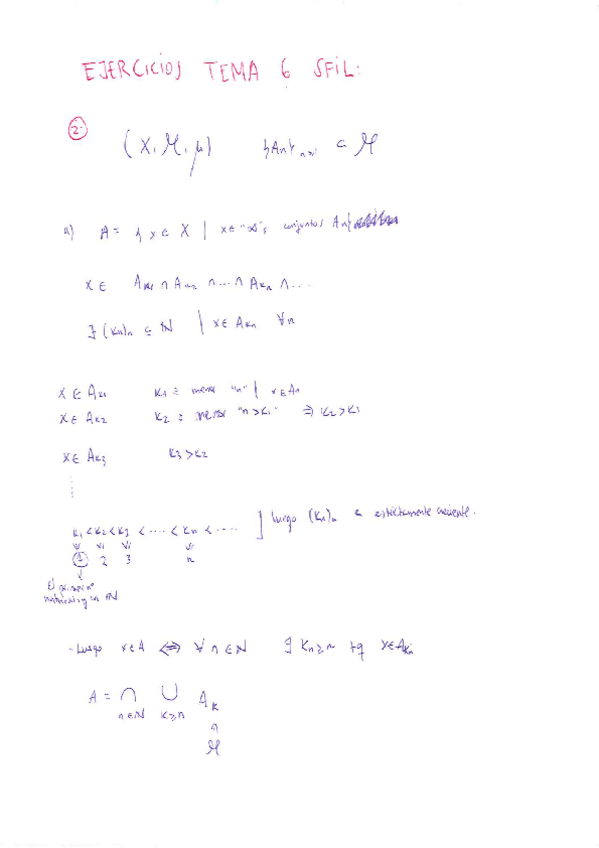 EJERCICIOS TEMA 6 SFIL:
2. (X, M, μ) {An}n≥1 ⊂ M
a) A = { x ∈ X | x ∈ "∞"s conjuntos An}
x ∈ Ak1 ∩ Ak2 ∩ ... ∩ Akn ∩ ...
∃ (kn)n ⊆ ℕ | x ∈ Akn ∀n
x ∈ Ak1 k1 ≡ menor "n" | x ∈ An
x ∈ Ak2 k2 ≡ menor "n > k1" ⇒ k2 > k1
x ∈ Ak3 k3 > k2
k1 < k2 < k3 < .... < kn < .... ] Luego (kn)n es estrictamente creciente.
1 2 3 n
El primer nº
natural en ℕ
- Luego x ∈ A ⇔ ∀ n ∈ ℕ ∃ kn ≥ n tq x ∈ Akn
A = ∩ ∪ Ak
n ∈ ℕ k ≥ n
M